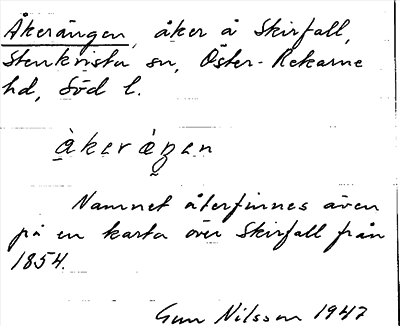 Åkerängen, åker å Skirfall,
Stenkvista sn, Öster-Rekarne
hd, Söd l.
àkeràŋen
Namnet återfinnes även
på en karta över Skirfall från
1854.
Gun Nilsson 1947